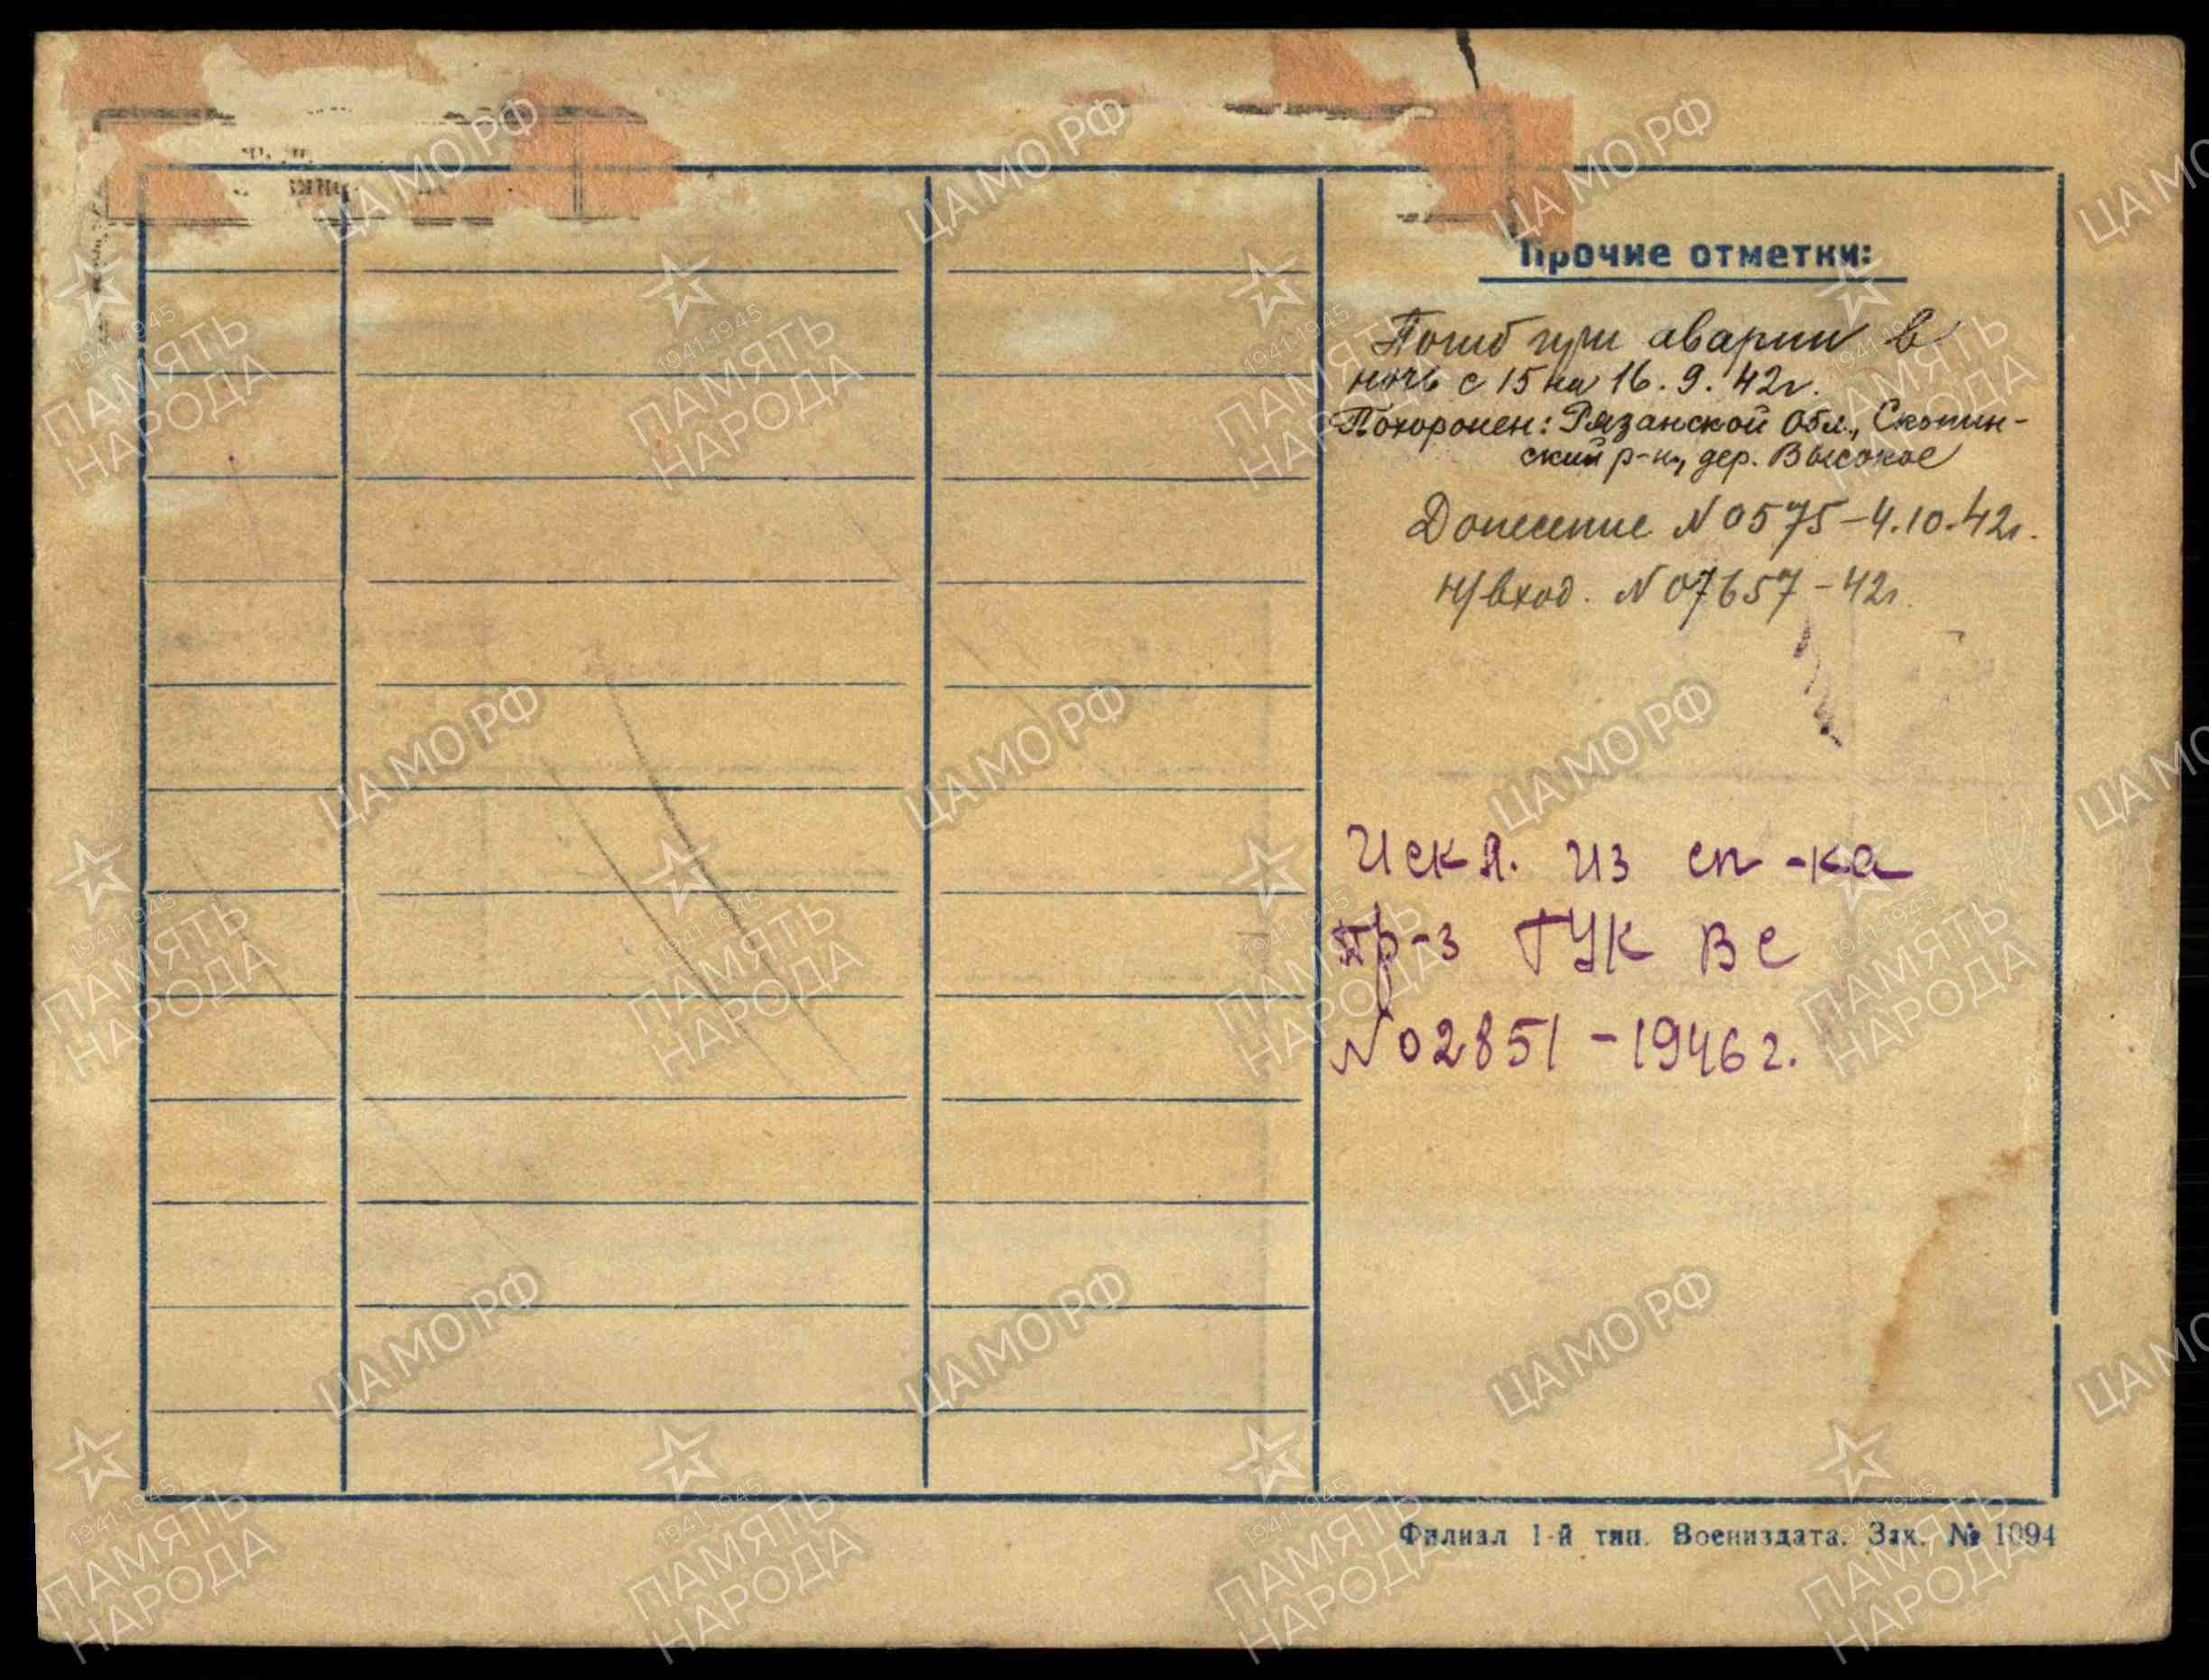 Прочие отметки:
Погиб при аварии в
ночь с 15 на 16.9.42г.
Похоронен: Рязанской обл., Скопин-
ский р-н, дер. Высокое
Донесение N 0575-4.10.42г.
н/вход. N 07657-42г.
Искл. из сп-ка
пр-з ГУК ВС
N 02851-1946г.
Филиал 1-й тип. Воениздата. Зак. № 1094
ЦАМО РФ
1941-1945
ПАМЯТЬ
НАРОДА